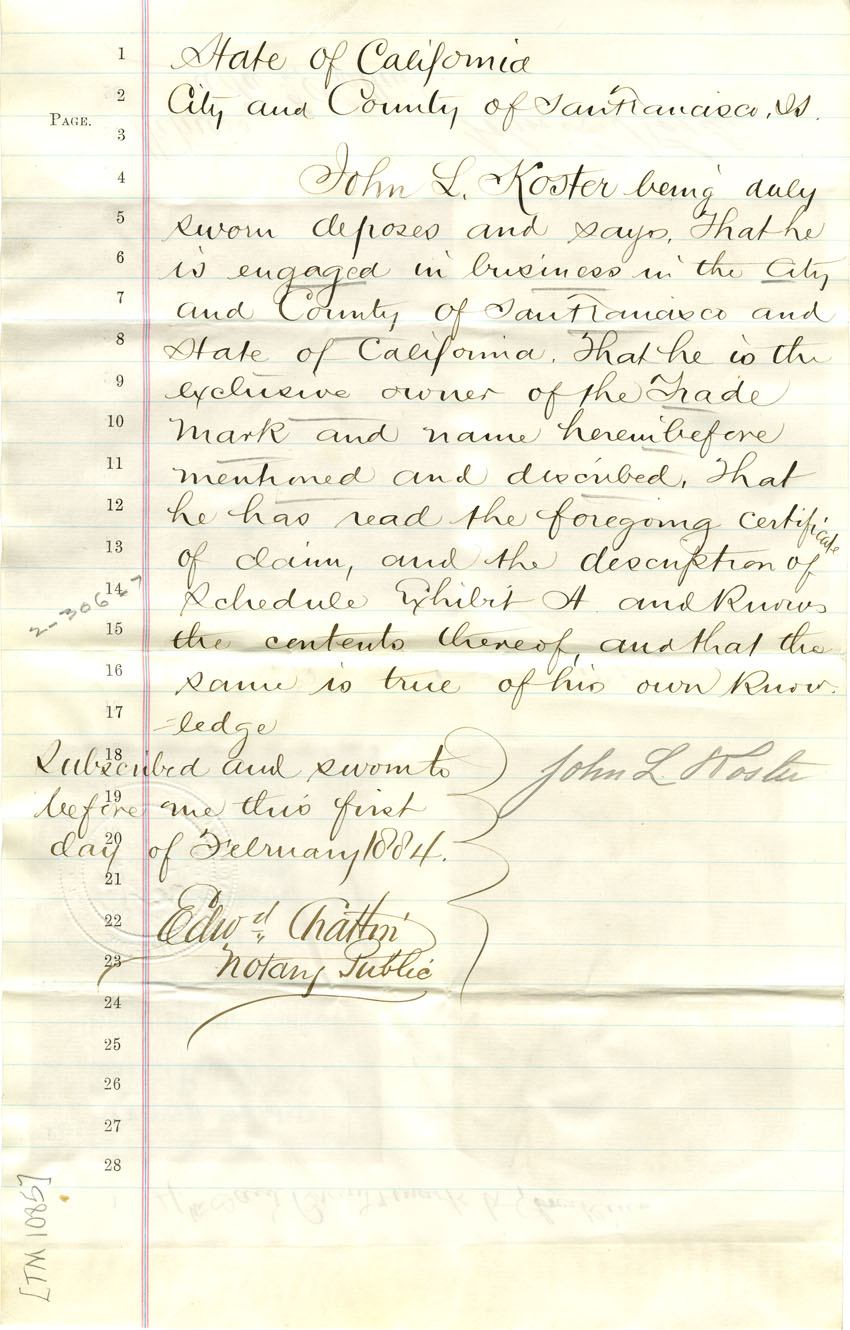 1 State of California
2 City and County of San Francisco, SS.
PAGE.
3
4 John L. Koster being duly
5 sworn deposes and says, That he
6 is engaged in business in the City
7 and County of San Francisco and
8 State of California. That he is the
9 exclusive owner of the Trade
10 Mark and name hereinbefore
11 mentioned and discribed, That
12 he has read the foregoing certificate
13 of claim, and the description of
14 Schedule Exhibit A and knows
15 the contents thereof, and that the
16 same is true of his own know-
17 =ledge
18 Subscribed and sworn to
John L Koster
19 before me this first
20 day of February 1884.
21
22 Edwd Chattin
23 Notary Public
24
25
26
27
28
[TM 1085]